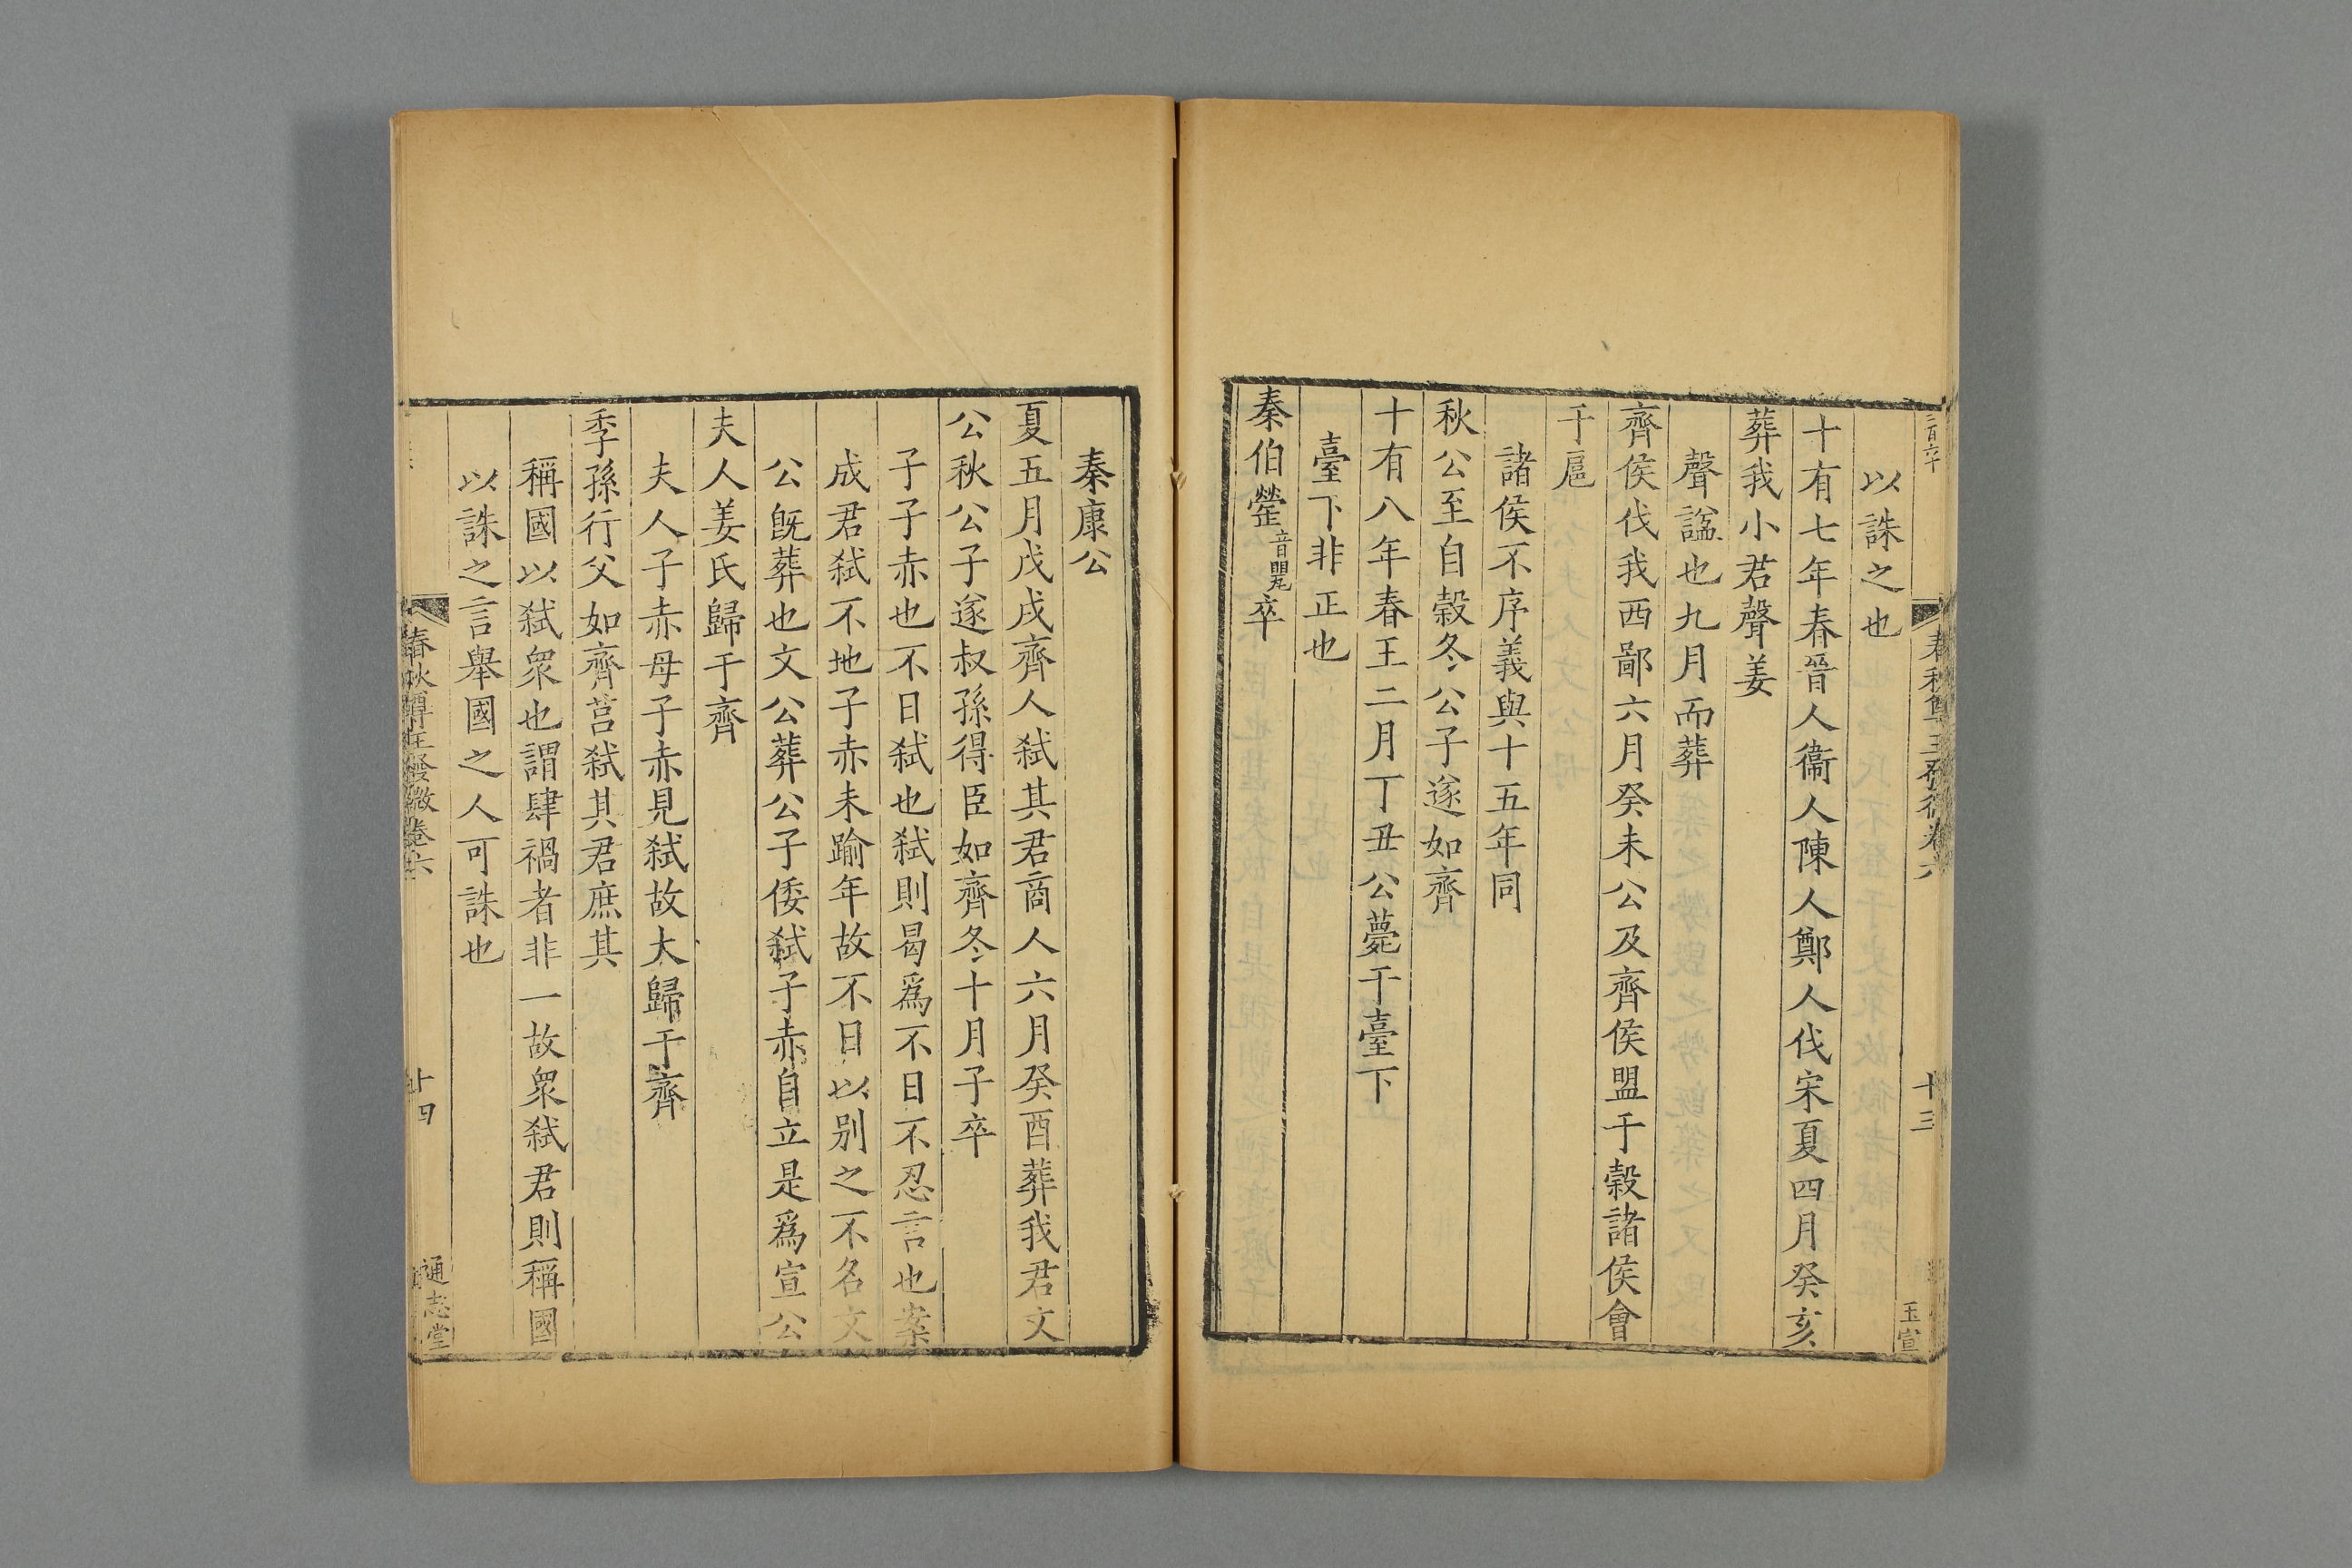 三百六十
春秋尊王發微卷六
十三
王宣
以誅之也
十有七年春晉人衞人陳人鄭人伐宋夏四月癸亥
葬我小君聲姜
聲諡也九月而葬
齊侯伐我西鄙六月癸未公及齊侯盟于穀諸侯會
于扈
諸侯不序義與十五年同
秋公至自穀冬公子遂如齊
十有八年春王二月丁丑公薨于臺下
臺下非正也
秦伯罃音罌卒
秦康公
夏五月戊戌齊人弑其君商人六月癸酉葬我君文
公秋公子遂叔孫得臣如齊冬十月子卒
子子赤也不日弑也弑則曷爲不日不忍言也案
成君弑不地子赤未踰年故不日以別之不名文
公旣葬也文公葬公子倭弑子赤自立是爲宣公
夫人姜氏歸于齊
夫人子赤母子赤見弑故大歸于齊
季孫行父如齊莒弑其君庶其
稱國以弑衆也謂肆禍者非一故衆弑君則稱國
以誅之言舉國之人可誅也
春秋尊王發微卷六
十四
通志堂